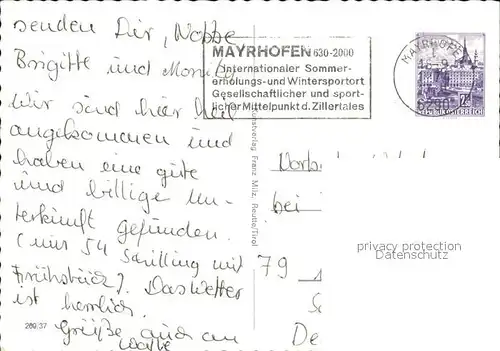 senden Dir, Nobbe
Brigitte und Monika
Wir sind hier heil
angekommen und
haben eine gute
und billige Un-
terkunft gefunden.
(nur 54 Schilling mit
Frühstück). Das Wetter
ist herrlich.
Grüße auch an
MAYRHOFEN 630-2000
Internationaler Sommer-
erholungs- und Wintersportort
Gesellschaftlicher und sport-
licher Mittelpunkt d. Zillertales
MAYRHOFEN
6290
REPUBLIK ÖSTERREICH
Kunstverlag Franz Milz, Reutte/Tirol
bei
79
De
privacy protection
Datenschutz
269/37